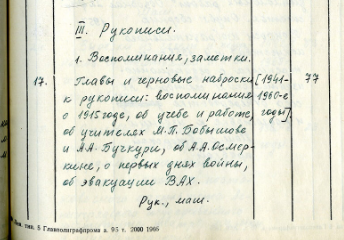 III. Рукописи.
1. Воспоминания, заметки.
17. Главы и черновые наброски [1941- 77
к рукописи: воспоминания 1960-е
о 1915 годе, об учебе и работе, годы].
об учителях М.П. Бобышове
и А.А. Бучкури, об А.А. Осмер-
кине, о первых днях войны,
об эвакуации ВАХ.
Рук., маш.
тип. 6 Главполиграфпрома з. 95 т. 2000 1965